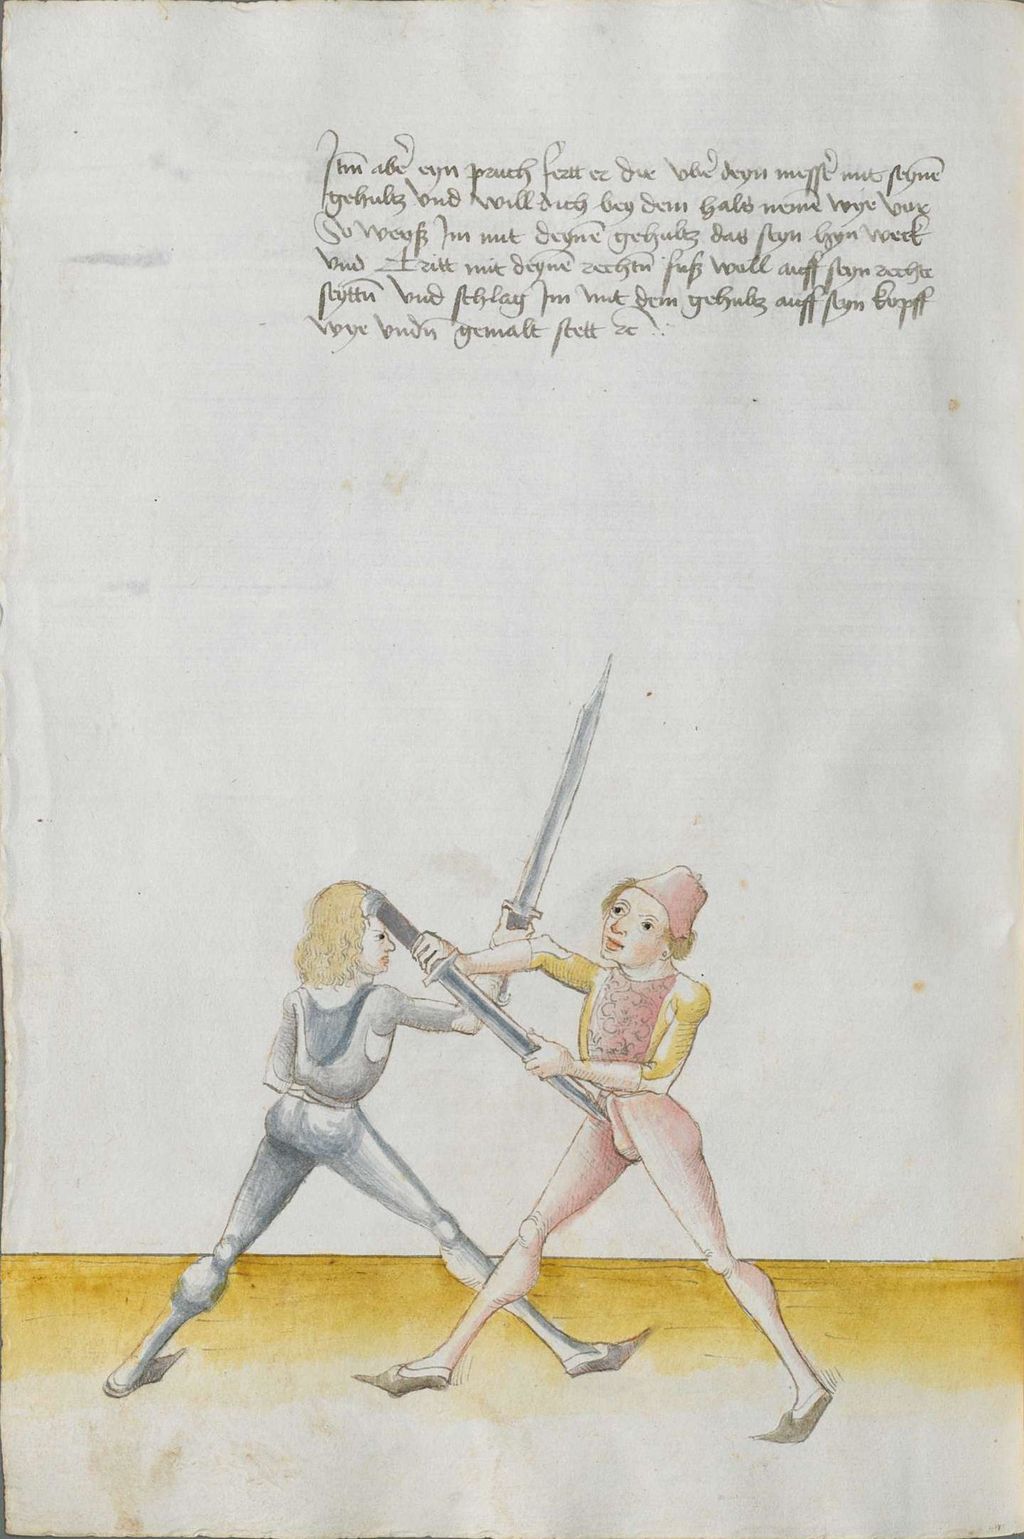 Itm̄ aber̄ eyn pruch fertt er dir vber̄ deyn messer̄ mit seynē
gehultz vnd will dich bey dem hals nemē wye vor
So weyß Im mit deynē gehultz das seyn hyn weck
vnd Tritt mit deynē rechtn̄ fuß woll auff seyn rechte
seyttn̄ vnd schlag Im mit dem gehultz auff seyn kopff
wye vndn̄ gemalt stett ꝛc